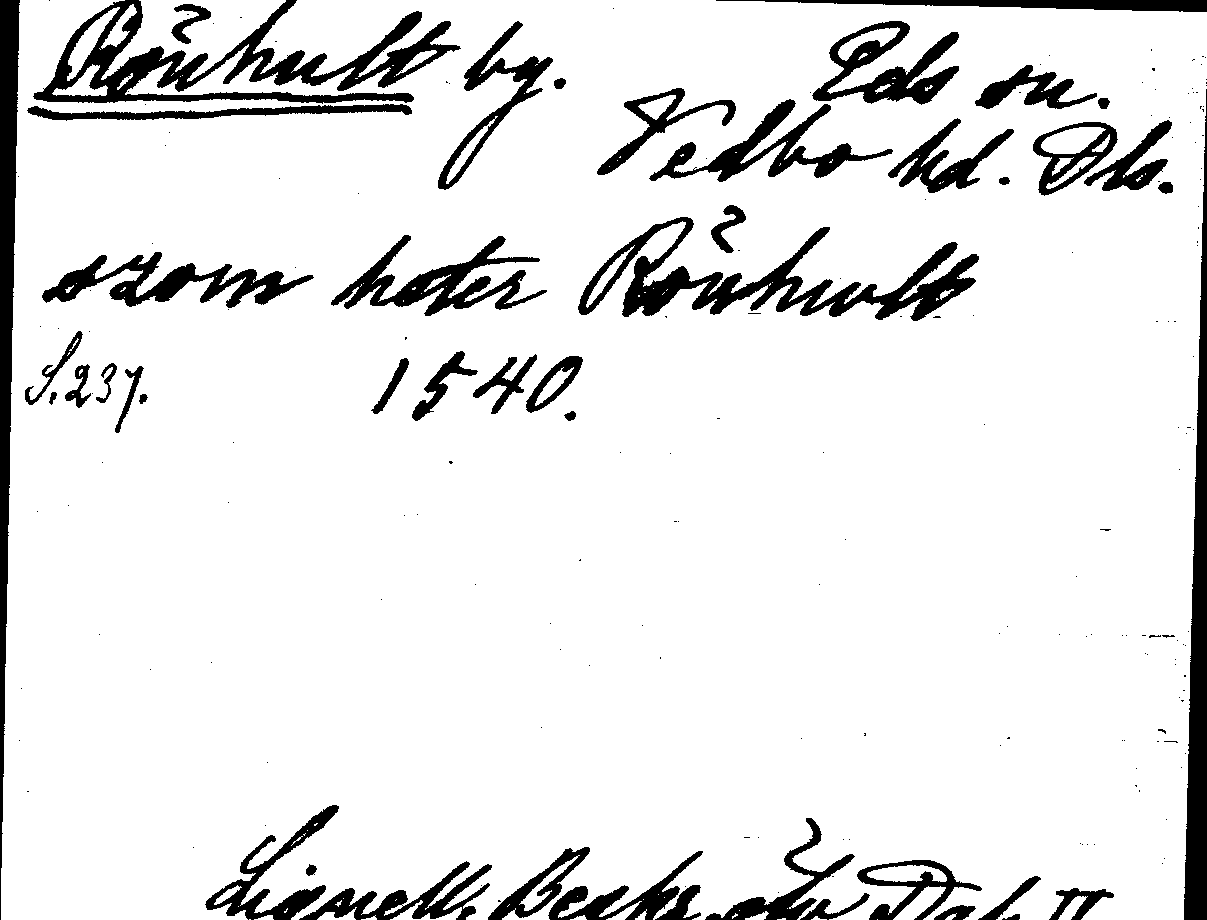 Rönhult by. Eds sn.
Vedbo hd. Dls.
szom heter Rönhult
S.237. 1540.
Lignell, Beskr. öfv Dal II